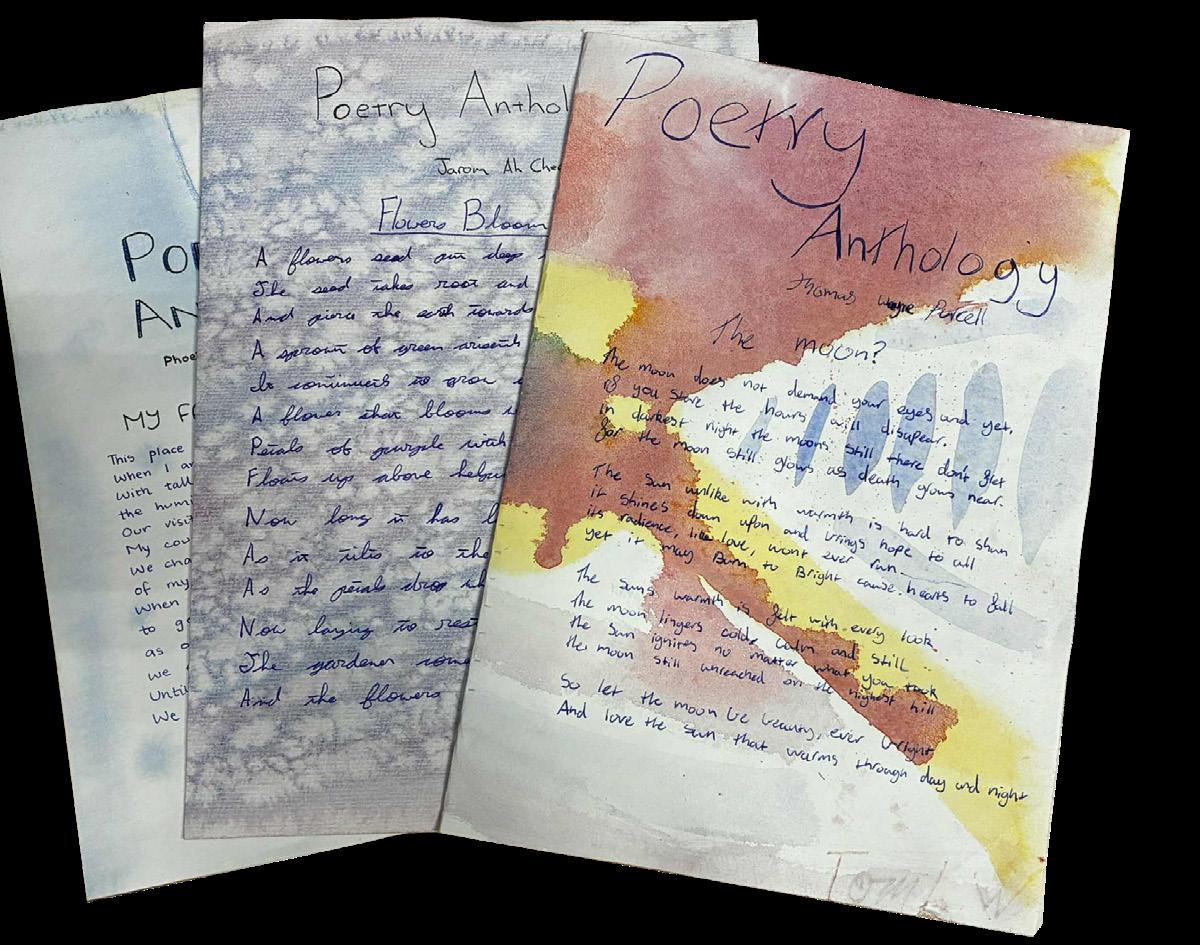 Poetry
Anthology
Thomas Wayne Purcell
The moon?
The moon does not demand your eyes and yet,
if you stare the hours will disapear.
in darkest night the moons still there don't fret
for the moon still glows as death grows near.
The sun unlike with warmth is hard to shun
it shines down upon and brings hope to all
its radience, like love, wont ever run
yet it may Burn to Bright cause hearts to fall
The suns warmth is felt with every look
The moon lingers colde, calm and still
the sun ignites no matter what you took
the moon still unreached on the highest hill
So let the moon be beauty, ever bright
And love the sun that warms through day and night
Poetry Anthol
Jarom Ah Che
Flowers Bloom
A flowers seed
The seed takes root and
And pierce the earth towards
A sprout of green
It continues to grow
A flower that blooms
Petals of purple with
up above
Now long it has
As it tilts to the
As the petals drop
Now laying to rest
The gardener
And the flowers
Po
An
Phoe
My F
This place
When I a
With tall
the humi
Our visit
My cou
We cha
of my
When
to g
as
we
Until
We